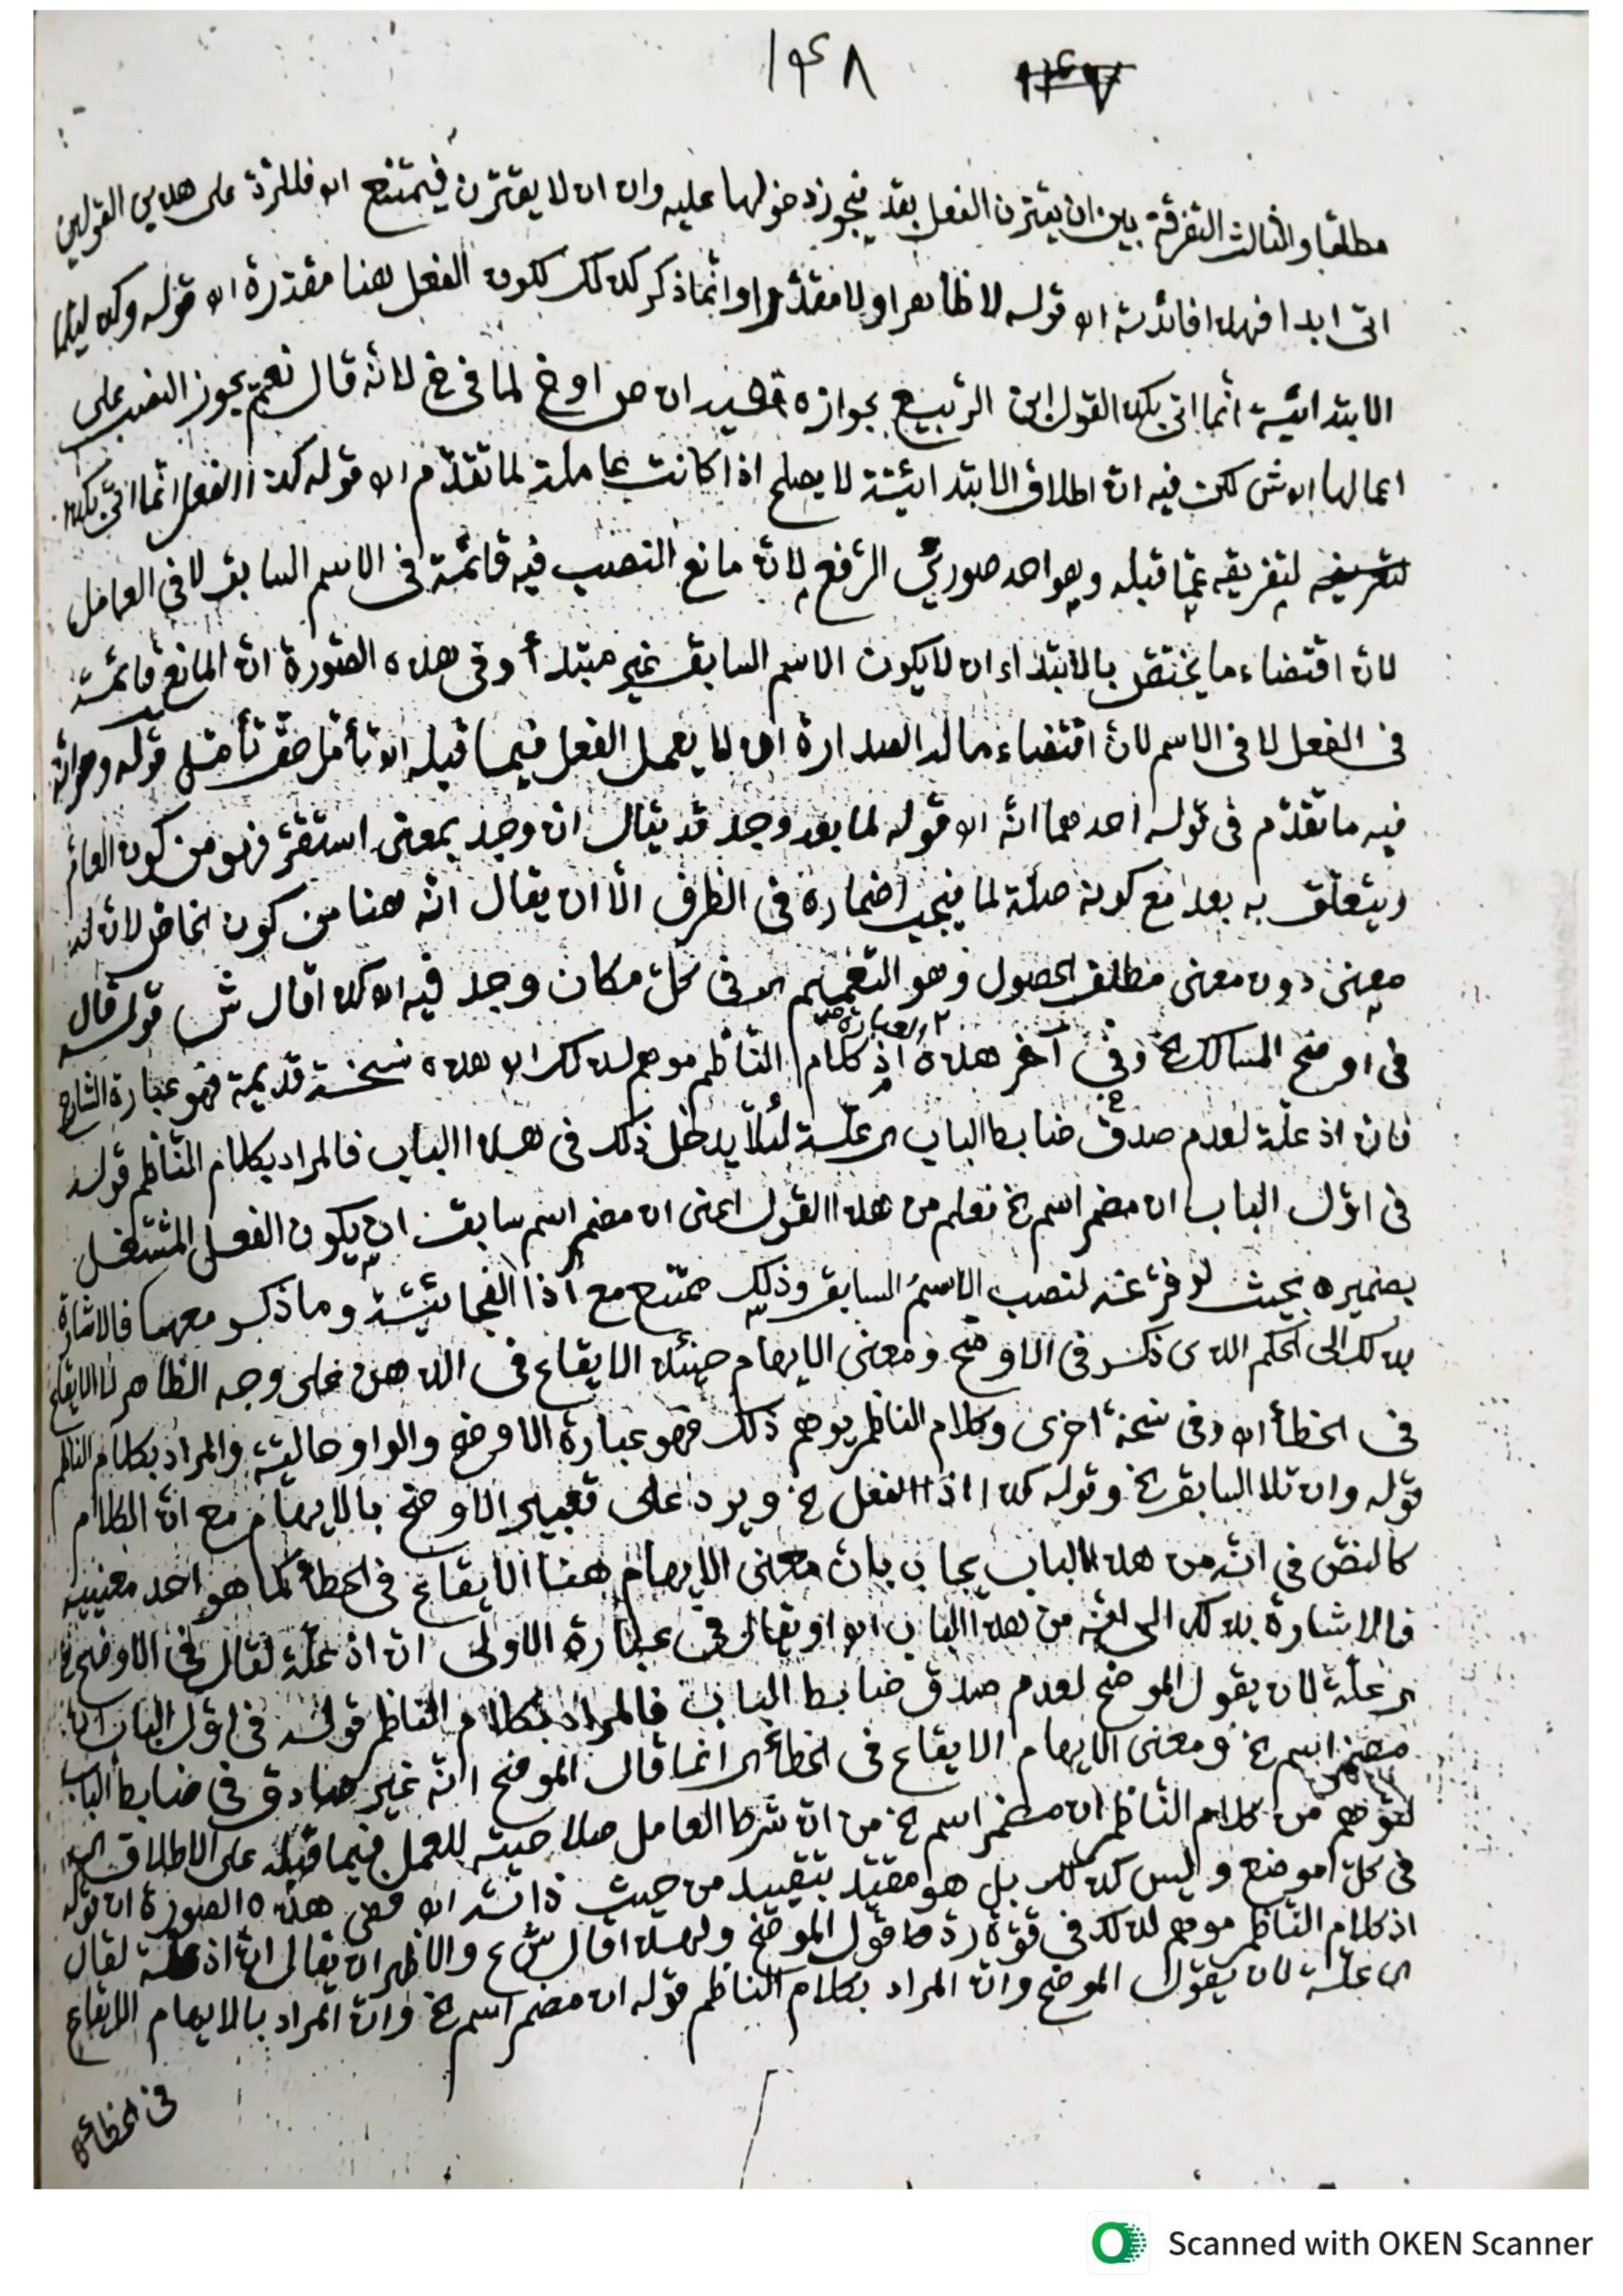 ١٤٨ ١٤٧
مطلقا والثالث التفرقة بين ان يقترن الفعل بقد فيجوز دخولها عليه وان لا يقترن فيمتنع اه فللرد على هذين القولين
اتى ابدا فهذا فائدته اه قوله لا ظاهرا ولا مقدرا وانما ذكر كذلك لكون الفعل هنا مقدرة اه قوله وكذا ليتما
الابتدائية انما اتى بكذا لقول ابن الربيع بجوازه لما في لانه قال نعم يجوز النصب على
اعمالها اه ش لكن فيه ان اطلاق الابتدائية لا يصلح اذا كانت عاملة لما تقدم اه قوله كذا اذا الفعل انما اتى بكذا
لتفريقه عما قبله وهو احد صورتي الرفع لان مانع النصب فيه قائمة في الاسم السابق لا في العامل
لان اقتضاء ما يختص بالابتداء ان لا يكون الاسم السابق غير مبتدأ وفي هذه الصورة ان المانع قائمة
في الفعل لا في الاسم لان اقتضاء ما له الصدارة ان لا يعمل الفعل فيما قبله اه تأمل حق تأمل قوله
فيه ما تقدم في قوله احدهما انه اه قوله لما بعد وجد قد يقال ان وجد بمعنى استقر فهو من كون العام
ويتعلق به بعد مع كونه صلة لما فيجب اضماره في الظرف الا ان يقال انه هنا من كون الخاص لان له
معنى دون معنى مطلق الحصول وهو التعميم اى في كل مكان وجد فيه اه كذا قال ش قوله قال
في اوضح المسالك الخ وفي آخر هذه العبارة اذ كلام الناظم موهم لذلك اه هذه نسخة قديمة فهو عبارة الشارح
فان اذ علة لعدم صدق ضابط الباب اى علة لئلا يدخل ذلك في هذا الباب فالمراد بكلام الناظم قوله
في اول الباب ان مضمر اسم الخ فعلم من هذا القول اعنى ان مضمر اسم سابق ان يكون الفعل المشتغل
بضميره بحيث لو فرغ عنه لنصب الاسم السابق وذلك ممتنع مع اذا الفجائية وما ذكر معها فالاشارة
بذلك الى الحكم الذى ذكر في الاوضح ومعنى الايهام حينئذ الايقاع في الذهن على وجه الظاهر لا الايقاع
في الخطأ اه وفي نسخة اخرى وكلام الناظم يوهم ذلك فهو عبارة الاوضح والواو حالية والمراد بكلام الناظم
قوله وان تلا السابق الخ وقوله كذا اذا الفعل الخ ويرد على تعبير الاوضح بالايهام مع ان الكلام
كالنص في انه من هذا الباب يجاب بان معنى الايهام هنا الايقاع في الخطأ كما هو احد معنييه
فالاشارة بذلك الى انه من هذا الباب اه او يقال في عبارة الاولى ان اذ علة لقال في الاوضح
اى علة لان يقول الموضح لعدم صدق ضابط الباب فالمراد بكلام الناظم قوله في اول الباب ان
مضمر اسم الخ ومعنى الايهام الايقاع في الخطأ اى انما قال الموضح انه غير صادق في ضابط الباب
لتوهم من كلام الناظم ان مضمر اسم الخ من ان شرط العامل صلاحيته للعمل فيما قبله على الاطلاق اى
في كل موضع وليس كذلك بل هو مقيد بتقييد من حيث ذاته اه فعلى هذه الصورة ان قوله
اذ كلام الناظم موهم لذلك في قوة رد قول الموضح ولهذا قال ش ع والاظهر ان يقال ان اذ علة لقال
اى علة لان يقول الموضح وان المراد بكلام الناظم قوله ان مضمر اسم الخ وان المراد بالايهام الايقاع
في الخطأ
Scanned with OKEN Scanner